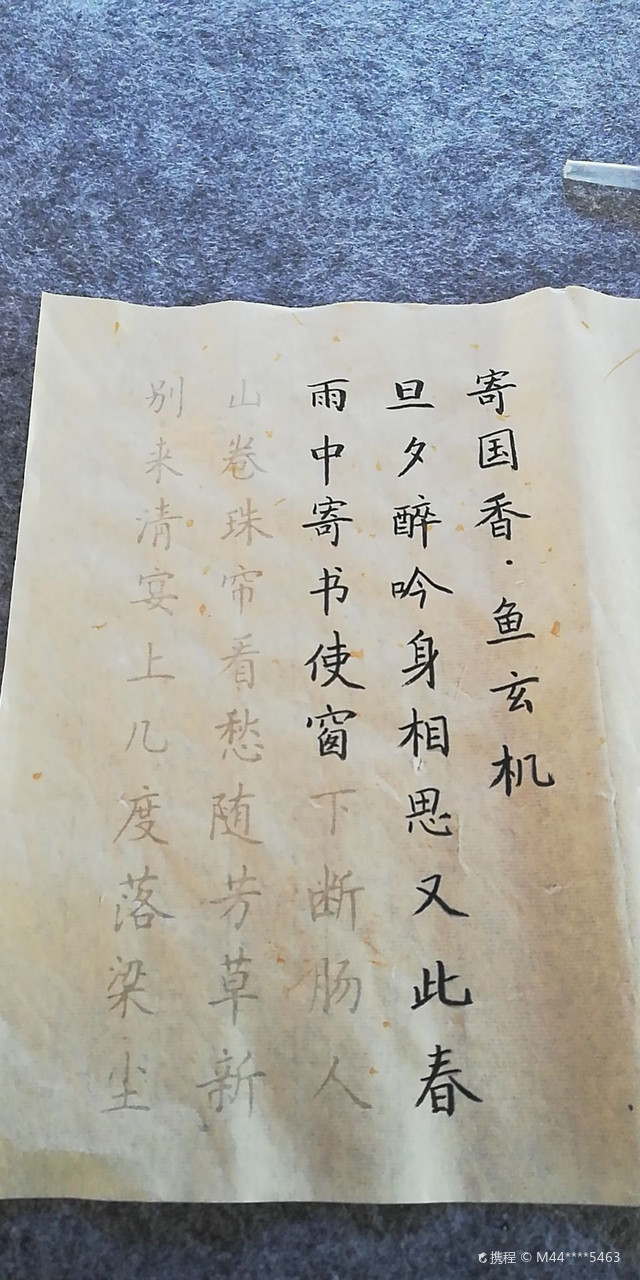 寄国香·鱼玄机
旦夕醉吟身相思又此春
雨中寄书使窗下断肠人
山卷珠帘看愁随芳草新
别来清宴上几度落梁尘
携程 © M44****5463